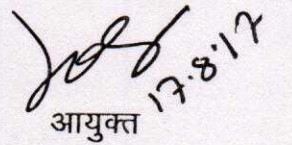 17.8.17
आयुक्त